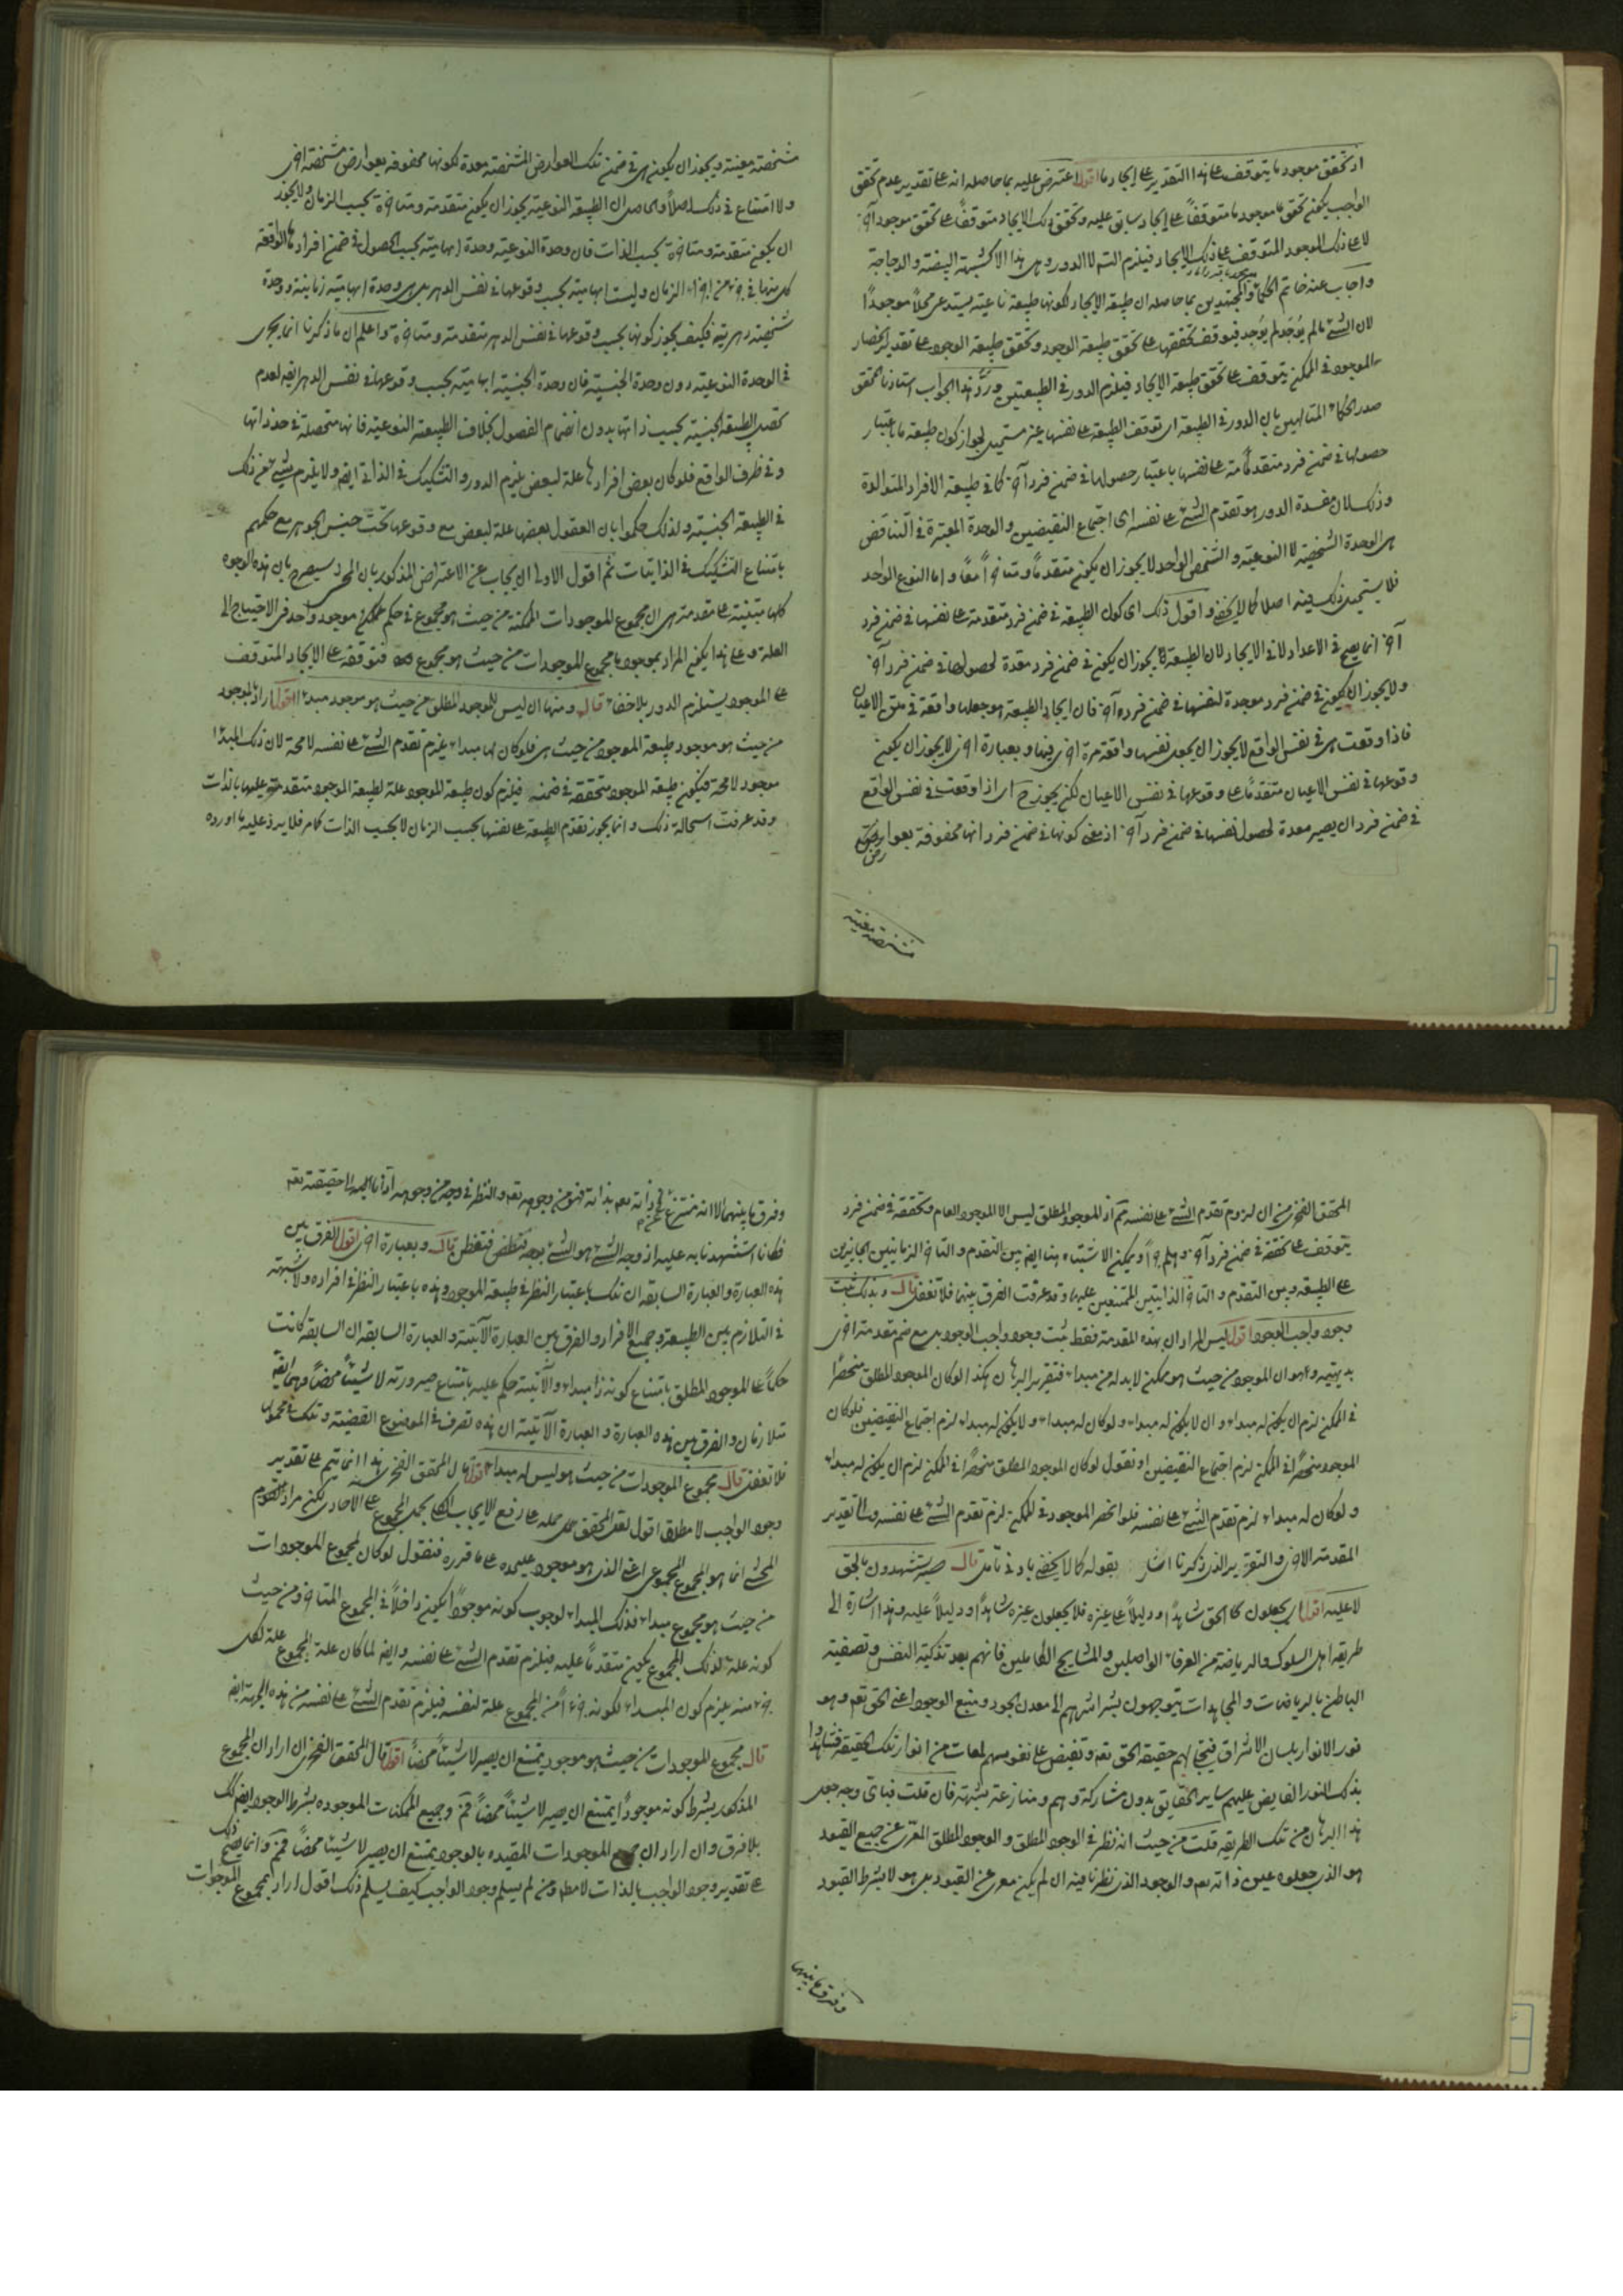 اذ تحقق موجود ما يتوقف على هذا التقدير على ايجاد ما اقول اعترض عليه بما حاصله انه على تقدير عدم تحقق
الواجب يكون تحقق ما موجود ما متوقفاً على ايجاد سابق عليه وتحقق ذلك الايجاد متوقفاً على تحقق موجود آخر
لا على ذلك الموجود المتوقف على ذلك الايجاد فيلزم التسلسل لا الدور وهل هذا الا كشبهة البيضة والدجاجة
واجاب عنه خاتم الحكماء والمجتهدين بما حاصله ان طبيعة الايجاد لكونها طبيعة ناعتية يستدعى محلاً موجوداً
لان الشئ ما لم يوجد لم يوجد فيتوقف تحققها على تحقق طبيعة الوجود وتحقق طبيعة الوجود على تقدير انحصار
الموجود فى الممكن يتوقف على تحقق طبيعة الايجاد فيلزم الدور فى الطبيعتين وردّ هذا الجواب استاذنا المحقق
صدر الحكماء المتالهين بان الدور فى الطبيعة اى توقف الطبيعة على نفسها غير مستحيل لجواز كون طبيعة ما باعتبار
حصولها فى ضمن فرد متقدمة على نفسها باعتبار حصولها فى ضمن فرد آخر كما فى طبيعة الافراد المتوالدة
وذلك لان مفسدة الدور هو تقدم الشئ على نفسه اى اجتماع النقيضين والوحدة المعتبرة فى التناقض
هى الوحدة الشخصية لا النوعية والشخص الواحد لا يجوز ان يكون متقدماً ومتاخراً معاً واما النوع الواحد
فلا يستحيل ذلك فيه اصلا كما لا يخفى واقول ذلك اى كون الطبيعة فى ضمن فرد متقدمة على نفسها فى ضمن فرد
آخر انما يصح فى الاعداد لا فى الايجاد لان الطبيعة يجوز ان يكون فى ضمن فرد معدة لحصولها فى ضمن فرد آخر
ولا يجوز ان يكون فى ضمن فرد موجدة لنفسها فى ضمن فرد آخر فان ايجاد الطبيعة هو جعلها واقعة فى متن الاعيان
فاذا وقعت هى فى نفس الواقع لا يجوز ان يجعل نفسها واقعة مرة اخرى فيها وبعبارة اخرى لا يجوز ان يكون
وقوعها فى نفس الاعيان متقدماً على وقوعها فى نفس الاعيان لكن يجوز ح اى اذا وقعت فى نفس الواقع
فى ضمن فرد ان يصير معدة لحصول نفسها فى ضمن فرد آخر اذ معنى كونها فى ضمن فرد انها محفوفة بعوارض
مشخصة معينة
مشخصة معينة ويجوز ان يكون هى فى ضمن تلك العوارض المشخصة معدة لكونها محفوفة بعوارض مشخصة اخرى
ولا امتناع فى ذلك اصلاً والحاصل ان الطبيعة النوعية يجوز ان يكون متقدمة ومتاخرة بحسب الزمان ولا يجوز
ان يكون متقدمة ومتاخرة بحسب الذات فان وحدة النوعية وحدة ابهامية بحسب الحصول فى ضمن افرادها الواقعة
كل منها فى جزء من اجزاء الزمان وليست ابهامية بحسب وقوعها فى نفس الدهر بل هى وحدة ابهامية زمانية ووحدة
شخصية دهرية فكيف يجوز كونها بحسب وقوعها فى نفس الدهر متقدمة ومتاخرة واعلم ان ما ذكرنا انما يجرى
فى الوحدة النوعية دون وحدة الجنسية فان وحدة الجنسية ابهامية بحسب وقوعها فى نفس الدهر ايضا لعدم
تحصل الطبيعة الجنسية بحسب ذاتها بدون انضمام الفصول بخلاف الطبيعة النوعية فانها متحصلة فى حد ذاتها
وفى ظرف الواقع فلو كان بعض افرادها علة لبعض يلزم الدور والتشكيك فى الذاتى ايضا ولا يلزم شئ من ذلك
فى الطبيعة الجنسية ولذلك حكموا بان العقول بعضها علة لبعض مع وقوعها تحت جنس الجوهر مع حكمهم
بامتناع التشكيك فى الذاتيات ثم اقول الاولى ان يجاب عن الاعتراض المذكور بان المحشى سيصرح بان هذه الوجوه
كلها مبتنية على مقدمة هى ان مجموع الموجودات الممكنة من حيث هو مجموع فى حكم ممكن موجود واحد فى الاحتياج الى
العلة وعلى هذا يكون المراد بموجود ما مجموع الموجودات من حيث هو مجموع فتوقفه على الايجاد المتوقف
على الموجود يستلزم الدور بلا خفاء قال ومنها ان ليس للموجود المطلق من حيث هو موجود مبدء اقول اراد بالموجود
من حيث هو موجود طبيعة الموجود من حيث هى فلو كان لها مبداء يلزم تقدم الشئ على نفسه لا محة لان ذلك المبدا
موجود لا محة فيكون طبيعة الموجود متحققة فى ضمنه فيلزم كون طبيعة الموجود علة لطبيعة الموجود متقدمة عليها بالذات
وقد عرفت استحالة ذلك وانما يجوز تقدم الطبيعة على نفسها بحسب الزمان لا بحسب الذات كما مر فلا يرد عليه ما اورده
المحقق الفخرى من ان لزوم تقدم الشئ على نفسه ثم اذ الموجود المطلق ليس الا الموجود العام وتحققه فى ضمن فرد
يتوقف على تحققه فى ضمن فرد آخر وهلم جراً ويمكن الاشتباه هنا ايضا بين التقدم والتاخر الزمانيين الجايزين
على الطبيعة وبين التقدم والتاخر الذاتيين الممتنعين عليها وقد عرفت الفرق بينهما فلا تغفل قال وبذلك ثبت
وجود واجب الوجود اقول ليس المراد ان بهذه المقدمة فقط يثبت وجود واجب الوجود بل مع ضم مقدمة اخرى
بديهية وهو ان الموجود من حيث هو ممكن لا بد له من مبداء فتقرير البرهان هكذا لو كان الموجود المطلق منحصراً
فى الممكن لزم ان يكون له مبداء وان لا يكون له مبداء ولو كان له مبداء ولا يكون له مبداء لزم اجتماع النقيضين فلو كان
الموجود منحصراً فى الممكن لزم اجتماع النقيضين او نقول لو كان الموجود المطلق منحصراً فى الممكن لزم ان يكون له مبداء
ولو كان له مبداء لزم تقدم الشئ على نفسه فلو انحصر الموجود فى الممكن لزم تقدم الشئ على نفسه التقدير
المقدمة الاخرى والتقرير الذى ذكرنا اشار بقوله كما لا يخفى بادنى تامل قال حيث يستشهدون بالحق
لا عليه اقول اى يجعلون كالحق شاهداً ودليلاً على غيره فلا يجعلون غيره شاهداً ودليلاً عليه وهذا اشارة الى
طريقة اهل السلوك والرياضة من العرفاء الواصلين والمشايخ الكاملين فانهم بعد تذكية النفس وتصفية
الباطن بالرياضات والمجاهدات يتوجهون بشراشرهم الى معدن الجود ومنبع الوجود اعنى الحق تعم وهو
نور الانوار بلسان الاشراق فيتجلى لهم حقيقة الحق تعم وتفيض على نفوسهم لمعات من انوار تلك الحقيقة فشاهدوا
بذلك النور الفايض عليهم ساير الحقايق بدون مشاركة وهم ومنازعة شبهة فان قلت فباى وجه جعل
هذا البرهان من تلك الطريقة قلت من حيث انه نظر فى الوجود المطلق والوجود المطلق المعرى عن جميع القيود
هو الذى جعلوه عين ذاته تعم والوجود الذى نظرنا فيه ان لم يكن معرى عن القيود بل هو لا بشرط القيود
وفرق ما بينهما
وفرق ما بينهما الا انه منتزع عن ذاته تعم بذاته فهو من وجوهه تعم والنظر فى وجه من وجوهه اذا نا اليه الحقيقة تعم
فكانا استشهدنا به عليه اذ وجه الشئ هو الشئ بوجه فتفطن قال وبعبارة اخرى اقول الفرق بين
هذه العبارة والعبارة السابقة ان تلك باعتبار النظر فى طبيعة الموجود وهذه باعتبار النظر فى افراده ولا شبهة
فى التلازم بين الطبيعة وجميع الافراد والفرق بين العبارة الآتية والعبارة السابقة ان السابقة كانت
حكماً على الموجود المطلق بامتناع كونه ذا مبداء والآتية حكم عليه بامتناع صيرورته لا شيئاً محضاً وهما ايضا
متلازمان والفرق بين هذه العبارة والعبارة الآتية ان هذه تصرف فى الموضوع القضية وتلك فى محمولها
فلا تغفل قال مجموع الموجودات من حيث هو ليس له مبداء اقول قال المحقق الفخرى هذا انما يتم على تقدير
وجود الواجب لا مطلقا اقول لعل المحقق حمله على رفع الايجاب الكلى بحمل المجموع على الاحادى لكن مراد
المحشى انما هو المجموع المجموعى اعنى الذى هو موجود عليحده على ما قرره فنقول لو كان لمجموع الموجودات
من حيث هو مجموع مبداء فذلك المبداء لوجوب كونه موجوداً يكون داخلاً فى المجموع المتاخر ومن حيث
كونه علة لذلك المجموع يكون متقدماً عليه فيلزم تقدم الشئ على نفسه وايضا لما كان علة المجموع علة لكل
جزء منه يلزم كون المبداء لكونه جزءاً من المجموع علة لنفسه فيلزم تقدم الشئ على نفسه من هذه الجهة ايضا
قال مجموع الموجودات من حيث هو موجود يمتنع ان يصير لا شيئاً محضاً اقول قال المحقق الفخرى ان اراد ان المجموع
المذكور بشرط كونه موجوداً يمتنع ان يصير لا شيئاً محضاً فمسلم وجميع الممكنات الموجوده بشرط الوجود ايضا كك
بلا فرق وان اراد ان جميع الموجودات المقيده بالوجود يمتنع ان يصير لا شيئا محضاً فمم وانما يصح ذلك
على تقدير وجود الواجب بالذات لا مطلقا ومن لم يسلم وجود الواجب كيف يسلم ذلك اقول اراد بمجموع الموجودات